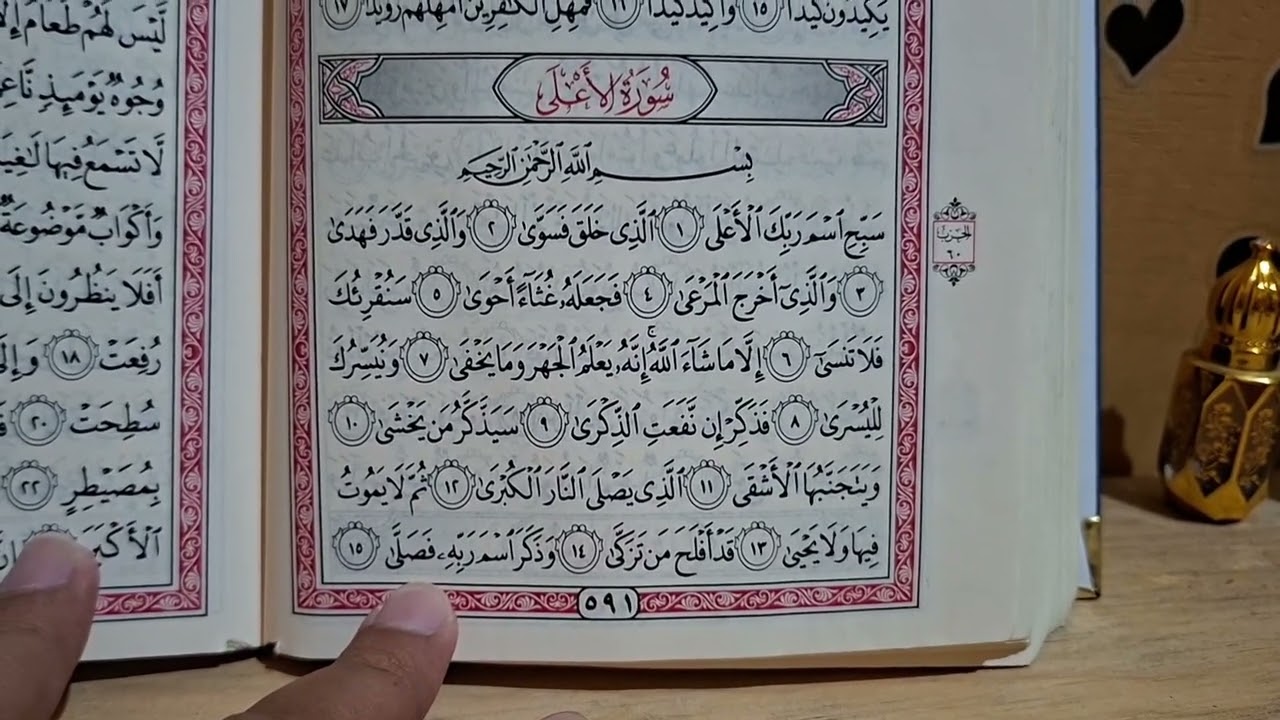 يَكِيدُونَ كَيْدًا ١٥ وَأَكِيدُ كَيْدًا ١٦ فَمَهِّلِ ٱلْكَٰفِرِينَ أَمْهِلْهُمْ رُوَيْدًۢا ١٧
سُورَةُ الأَعْلَى
بِسْمِ ٱللَّهِ ٱلرَّحْمَٰنِ ٱلرَّحِيمِ
سَبِّحِ ٱسْمَ رَبِّكَ ٱلْأَعْلَى ١ ٱلَّذِى خَلَقَ فَسَوَّىٰ ٢ وَٱلَّذِى قَدَّرَ فَهَدَىٰ
٣ وَٱلَّذِىٓ أَخْرَجَ ٱلْمَرْعَىٰ ٤ فَجَعَلَهُۥ غُثَآءً أَحْوَىٰ ٥ سَنُقْرِئُكَ
فَلَا تَنسَىٰٓ ٦ إِلَّا مَا شَآءَ ٱللَّهُ ۚ إِنَّهُۥ يَعْلَمُ ٱلْجَهْرَ وَمَا يَخْفَىٰ ٧ وَنُيَسِّرُكَ
لِلْيُسْرَىٰ ٨ فَذَكِّرْ إِن نَّفَعَتِ ٱلذِّكْرَىٰ ٩ سَيَذَّكَّرُ مَن يَخْشَىٰ ١٠
وَيَتَجَنَّبُهَا ٱلْأَشْقَى ١١ ٱلَّذِى يَصْلَى ٱلنَّارَ ٱلْكُبْرَىٰ ١٢ ثُمَّ لَا يَمُوتُ
فِيهَا وَلَا يَحْيَىٰ ١٣ قَدْ أَفْلَحَ مَن تَزَكَّىٰ ١٤ وَذَكَرَ ٱسْمَ رَبِّهِۦ فَصَلَّىٰ ١٥
٥٩١
الحزب
٦٠
لَّيْسَ لَهُمْ طَعَامٌ
وُجُوهٌ يَوْمَئِذٍ
لَّا تَسْمَعُ فِيهَا
وَأَكْوَابٌ مَّوْضُوعَةٌ
أَفَلَا يَنظُرُونَ إِلَى
رُفِعَتْ ١٨
سُطِحَتْ ٢٠
بِمُصَيْطِرٍ ٢٢
ٱلْأَكْبَرَ